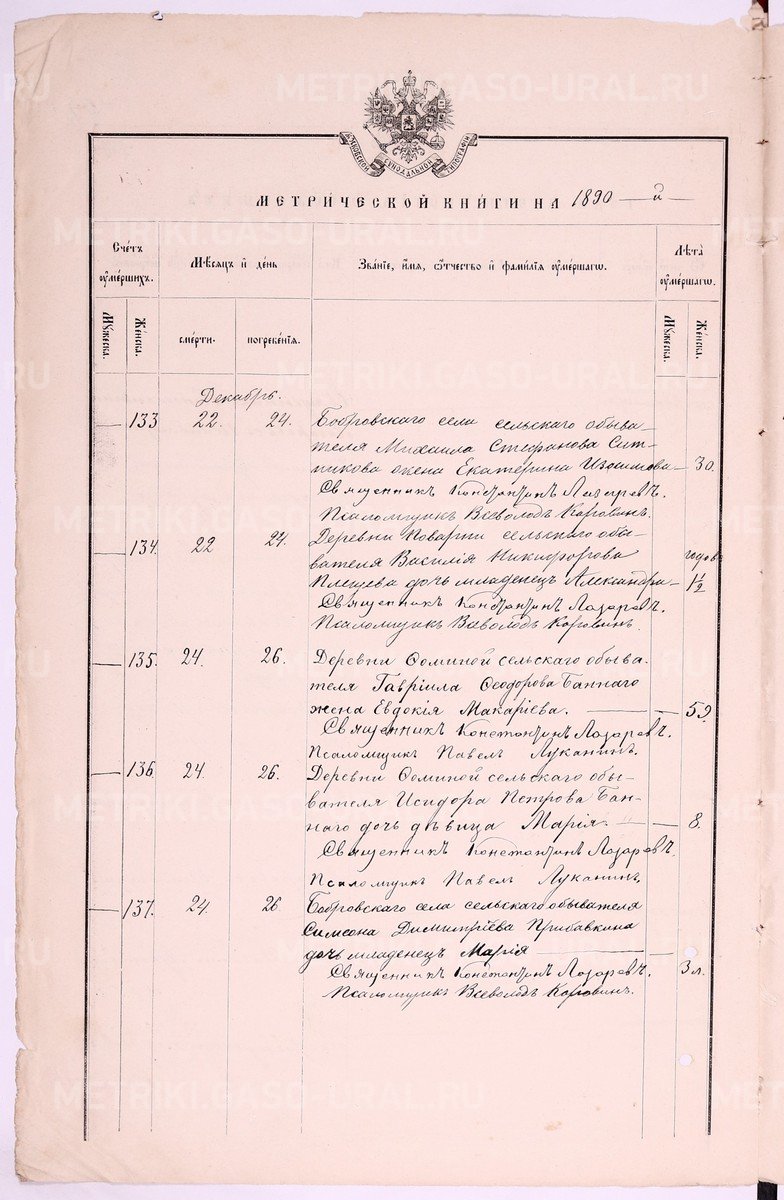 METRIKI.GASO-URAL.RU
МОСКОВСКОЙ СѴНОДАЛЬНОЙ ТИПОГРАФІИ
МЕТРИ́ЧЕСКОЙ КНИ́ГИ НА 1890 — й —
Сче́тъ ᲂумершихъ.
Мѣсяцъ и де́нь
Зва́нїе, и́мя, ѻ҆́тчество и фами́лїя ᲂуме́ршагѡ.
Лѣта̀ ᲂуме́ршагѡ.
Мꙋжеска.
Же́нска.
сме́рти.
погребе́нїя.
Мꙋжеска.
Же́нска.
Декабрь.
— 133 22. 24. Бобровскаго села сельскаго обыва-
теля Михаила Стефанова Сит-
никова жена Екатерина Изосимова — 30.
Священникъ Константинъ Лазаревъ.
Псаломщикъ Всеволодъ Коровинъ.
— 134. 22 24. Деревни Поварни сельскаго обы-
вателя Василія Никифорова годов
Плещева дочь младенецъ Александра — 1½
Священникъ Константинъ Лазаревъ.
Псаломщикъ Всеволодъ Коровинъ.
— 135. 24. 26. Деревни Ѳоминой сельскаго обыва-
теля Гавріила Ѳеодорова Баннаго
жена Евдокія Макаріева. — — 59.
Священникъ Константинъ Лазаревъ.
Псаломщикъ Павелъ Луканинъ.
— 136. 24. 26. Деревни Ѳоминой сельскаго обы-
вателя Исидора Петрова Бан-
наго дочь дѣвица Марія — — 8.
Священникъ Константинъ Лазаревъ.
Псаломщикъ Павелъ Луканинъ.
— 137. 24. 26 Бобровскаго села сельскаго обывателя
Симеона Димитріева Прибавкина
дочь младенецъ Марія — — 3 л.
Священникъ Константинъ Лазаревъ.
Псаломщикъ Всеволодъ Коровинъ.
METRIKI.GASO-URAL.RU